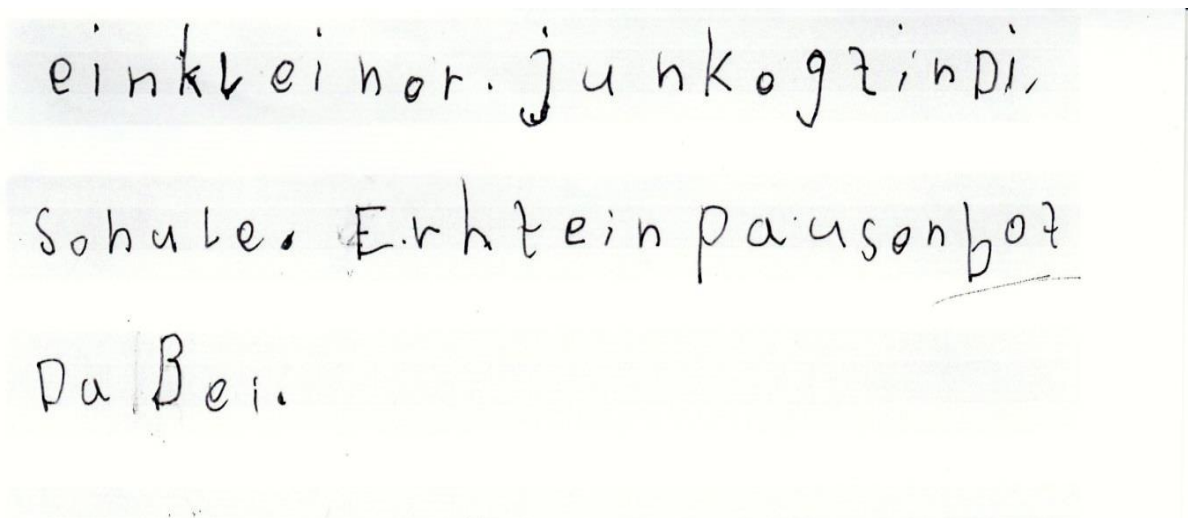 einkleinor. junkogtinDi,
Sohule. Erhteinpausonbot
DaBei.